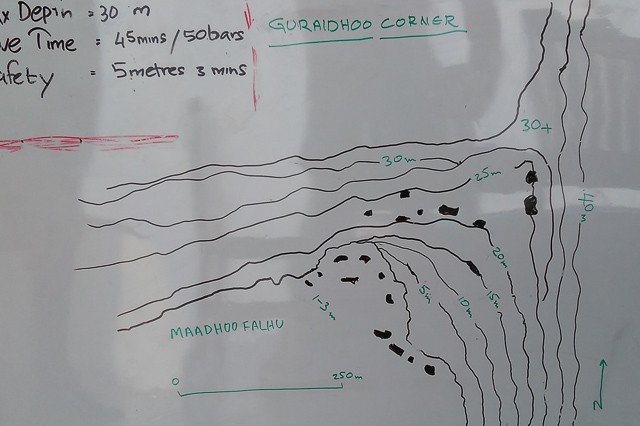 = 30 m
Time = 45mins/50bars
= 5metres 3 mins
GURAIDHOO CORNER
30+
30m
25m
40m
20m
15m
10m
5m
1-3m
MAADHOO FALHU
0 250m
N